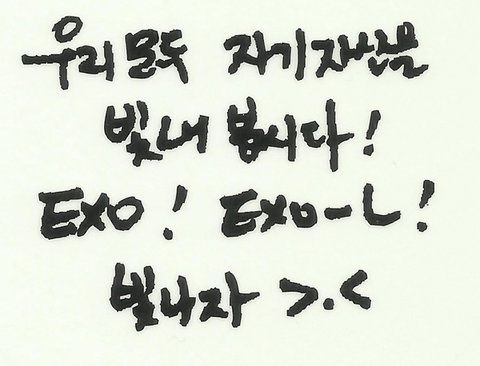 우리 모두 자기 자신을
빛내 봅시다!
EXO! EXO-L!
빛나자 >.<